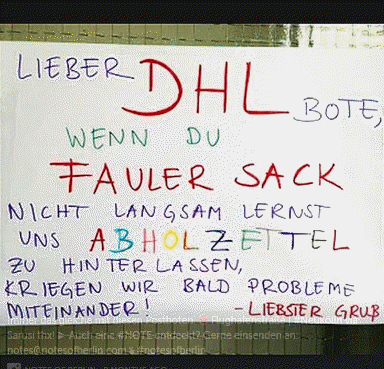 LIEBER DHL BOTE,
WENN DU
FAULER SACK
NICHT LANGSAM LERNST
UNS ABHOLZETTEL
ZU HINTERLASSEN,
KRIEGEN WIR BALD PROBLEME
MITEINANDER! - LIEBSTER GRUß
immer das gleiche mit diesen Postboten.
Auch eine #NOTE entdeckt? Gerne einsenden an:
notes@notesofberlin.com #notesofberlin
NOTES OF BERLIN